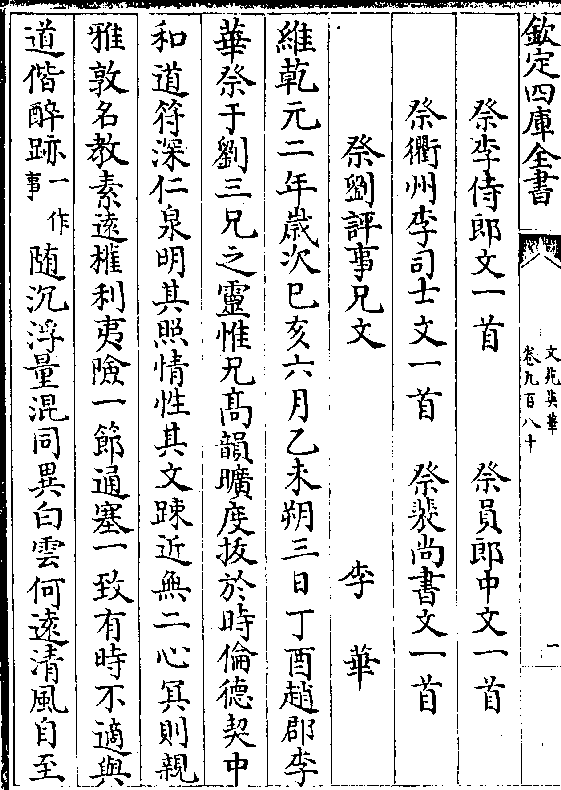 欽定四庫全書
文苑英華
卷九百八十
二
祭李侍郎文一首　祭員郎中文一首
祭衢州李司士文一首　祭裴尚書文一首
祭劉評事兄文　李華
維乾元二年歲次已亥六月乙未朔三日丁酉趙郡李
華祭于劉三兄之靈惟兄髙韻曠度拔於時倫德契中
和道符深仁泉明其照情性其文踈近無二心冥則親
雅敦名教素遠權利夷險一節通塞一致有時不適與
道偕醉跡一作事隨沉浮量混同異白雲何遠清風自至